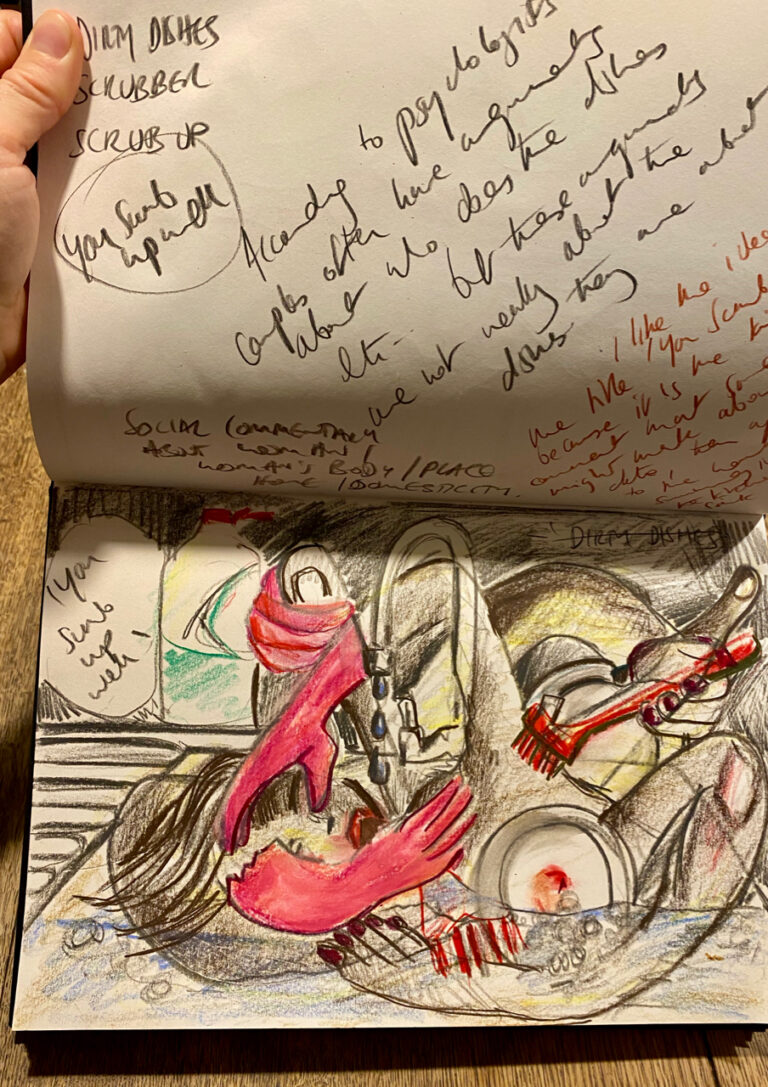 DIRTY DISHES
SCRUBBER
SCRUB UP
you Scrub
up well
According to psychologists
couples often have arguments
about who does the dishes
etc - but these arguments
are not really about the
dishes they are about
I like the idea
the title 'you Scrub
because it is the
comment that
might make about
date
to the
SOCIAL COMMENTARY
ABOUT WOMAN /
WOMAN'S BODY / PLACE
HOME / DOMESTICITY.
'DIRTY DISHES'
'you
Scrub
up
well'